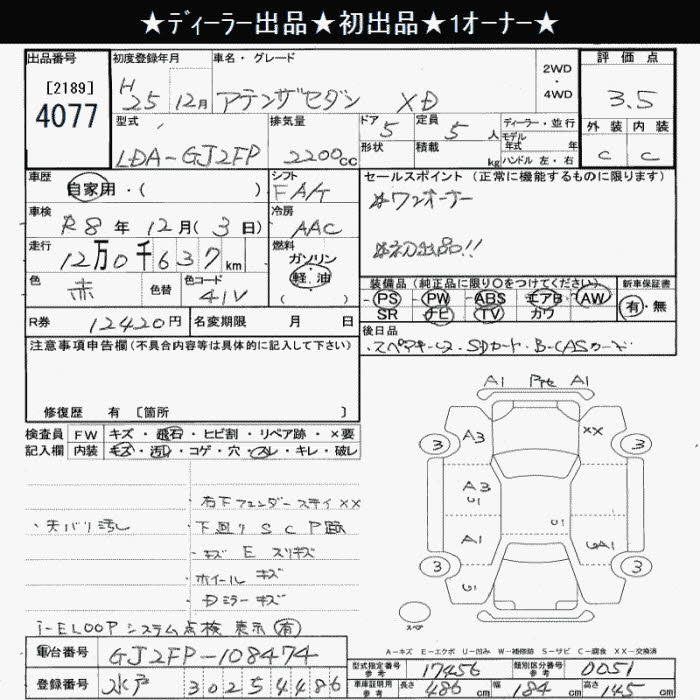 ★ディーラー出品★初出品★1オーナー★
出品番号 初度登録年月 車名・グレード 2WD・4WD 評価点
[2189] 4077 H25年12月 アテンザセダン XD 3.5
型式 排気量 ドア 5 定員 5人 ディーラー・並行 外装 内装
モデル年式 年式
LDA-GJ2FP 2200cc 形状 積載 kg ハンドル 左・右 C C
車歴 シフト セールスポイント(正常に機能するものに限ります)
自家用・( ) FA/T ※ワンオーナー
車検 冷房
R8年12月(3日) AAC ※初出品!!
走行 燃料
12万0千637km ガソリン・軽油 ( )
色 赤 色替 色コード 41V
装備品(純正品に限り○をつけてください) 新車保証書
PS PW ABS エアB AW 有・無
SR ナビ TV カワ
R券 12420円 名変期限 月 日 後日品
・スペアキー ・SDカード・B-CASカード
注意事項申告欄(不具合内容等は具体的に記入して下さい)
修復歴 有 [箇所 ]
検査員 FW キズ・飛石・ヒビ割・リペア跡・×要
記入欄 内装 キズ・汚れ・コゲ・穴・スレ・キレ・破レ
A1 A1
A3 XX
3 3
A3
U1
U1
A1
3 3
U1
スペア
右下フェンダーステイXX
・天バリ汚し 下廻り S C P跡
キズ E スリキズ
ホイールキズ
Dミラーキズ
i-ELOOPシステム点検 表示(有)
A-キズ E-エクボ U-凹み W-補修跡 S-サビ C-腐食 XX-交換済
車台番号 GJ2FP-108474 型式指定番号 参考 17456 類別区分番号 参考 0051
登録番号 水戸 302 54486 車庫証明用 参考 長さ 486cm 幅 184cm 高さ 145cm